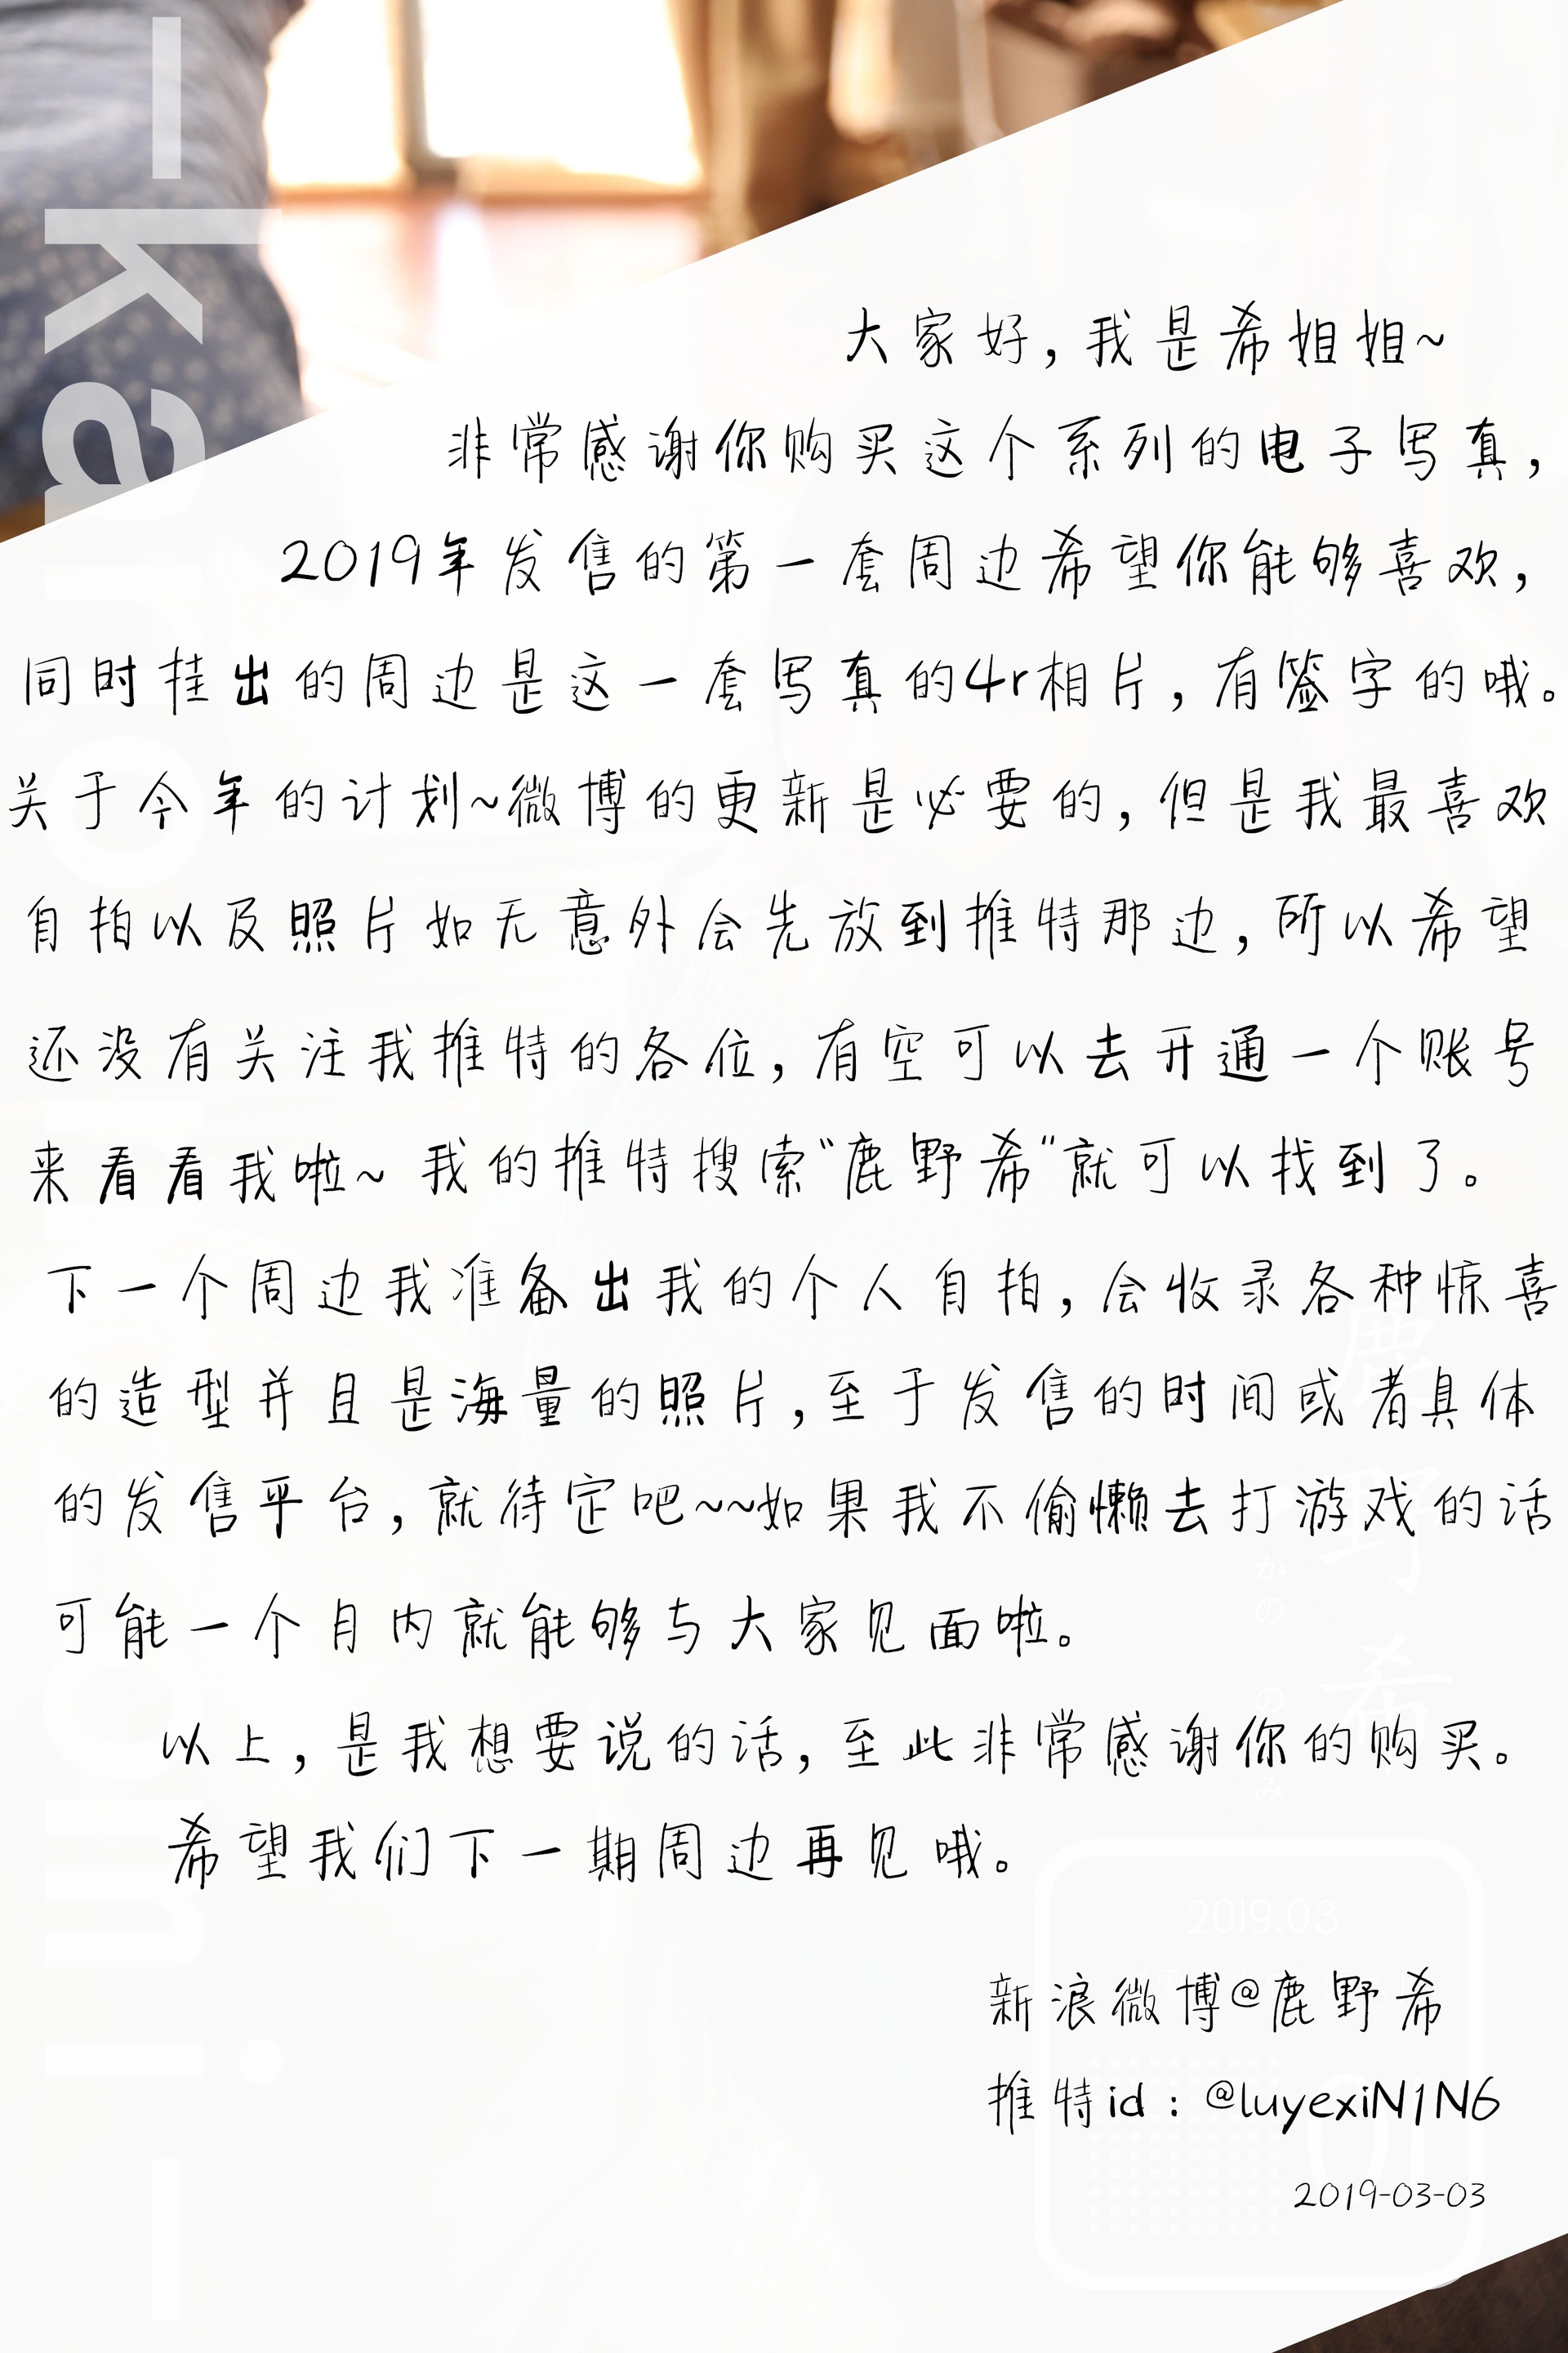 大家好，我是希姐姐~
非常感谢你购买这个系列的电子写真，
2019年发售的第一套周边希望你能够喜欢，
同时挂出的周边是这一套写真的4r相片，有签字的哦。
关于今年的计划~微博的更新是必要的，但是我最喜欢
自拍以及照片如无意外会先放到推特那边，所以希望
还没有关注我推特的各位，有空可以去开通一个账号
来看看我啦~ 我的推特搜索“鹿野希”就可以找到了。
下一个周边我准备出我的个人自拍，会收录各种惊喜
的造型并且是海量的照片，至于发售的时间或者具体
的发售平台，就待定吧~~如果我不偷懒去打游戏的话
可能一个月内就能够与大家见面啦。
以上，是我想要说的话，至此非常感谢你的购买。
希望我们下一期周边再见哦。
新浪微博@鹿野希
推特id：@luyexiN1N6
2019-03-03
鹿野希
2019.03
01